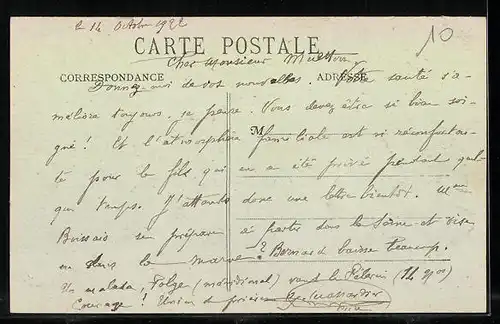 le 14 Octobre 1922
10
CARTE POSTALE
Cher Monsieur
CORRESPONDANCE ADRESSE
Donnez-moi de vos nouvelles. Votre santé s'a-
méliore toujours, je pense. Vous devez être si bien soi-
gné! Et l'atmosphère familiale est si réconfortan-
M
te pour le fils qui en a été privé pendant quel-
que temps. J'attends donc une lettre bientôt. Mme
Boissais se prépare à partir dans la
en dans la Marne? Bernard baisse beaucoup.
Un malade, (méridional) vend le Pèlerin (14 gros)
Courage! Union de prières